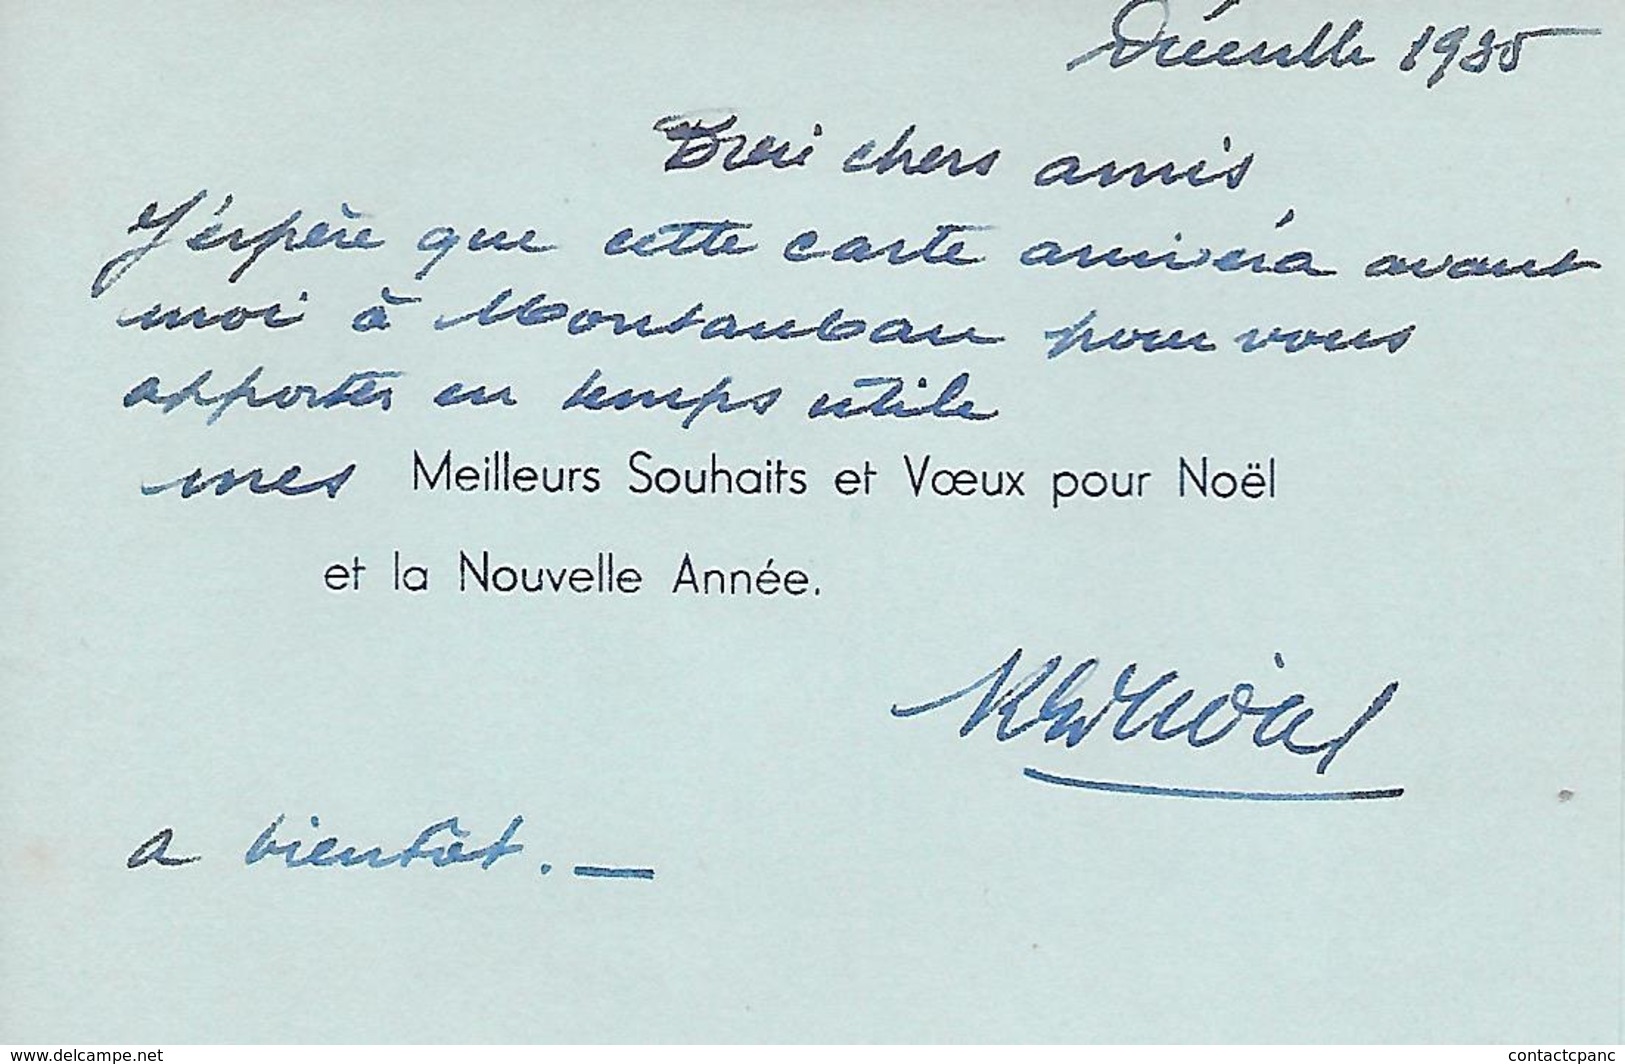 Décembre 1935
Bien chers amis
J'éspère que cette carte arrivera avant
moi à Montauban pour vous
apporter en temps utile
mes Meilleurs Souhaits et Vœux pour Noël
et la Nouvelle Année.
a bientôt. —
www.delcampe.net
contactcpanc